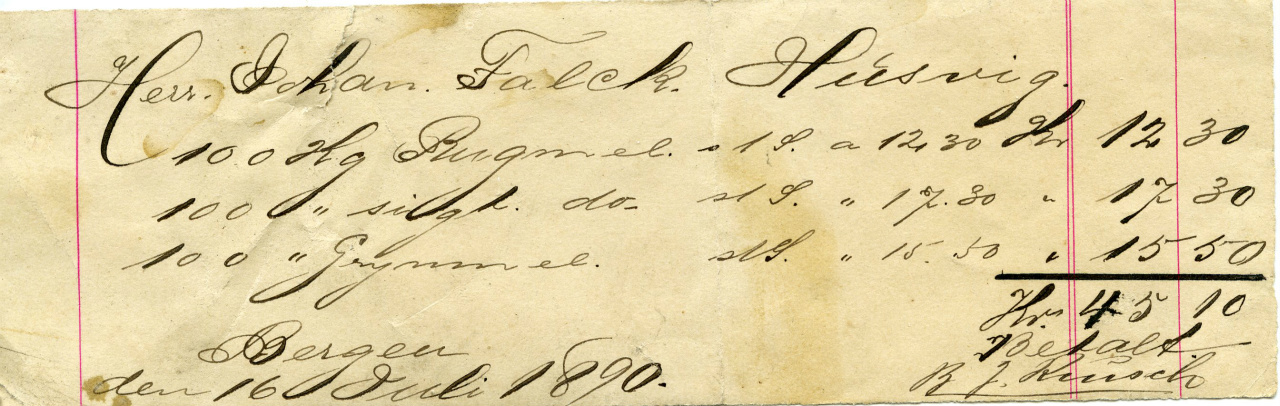 Herr. Johan. Falck. Husvig.
100 Kg Rugmel. s 1 S. a 12,30 Kr 12 30
100 " sigt. do- s 1 S. " 17.30 " 17 30
100 " Grynmel. s 1 S. " 15.50 " 15 50
Kr. 45 10
Bergen Betalt
den 16 Juli 1890.